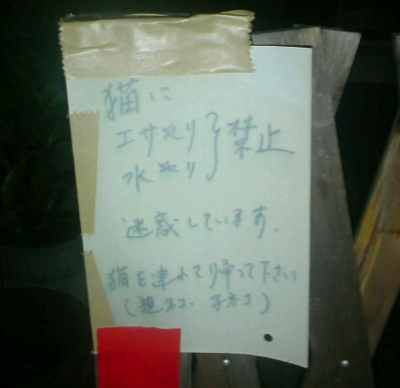 猫に
エサやり
水やり
禁止
迷惑しています。
猫を連れて帰って下さい
(親ネコ、子ネコ)